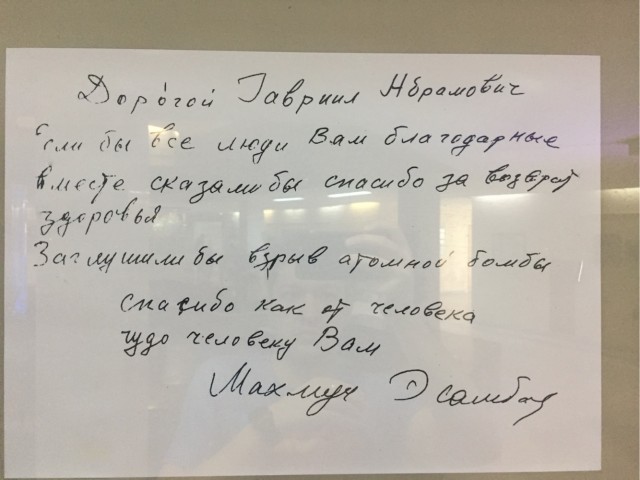 Дорогой Гавриил Абрамович
Если бы все люди Вам благодарные
вместе сказали бы спасибо за возврат
здоровья
Заглушили бы взрыв атомной бомбы
спасибо как от человека
чудо человеку Вам
Махмуд Эсамбаев